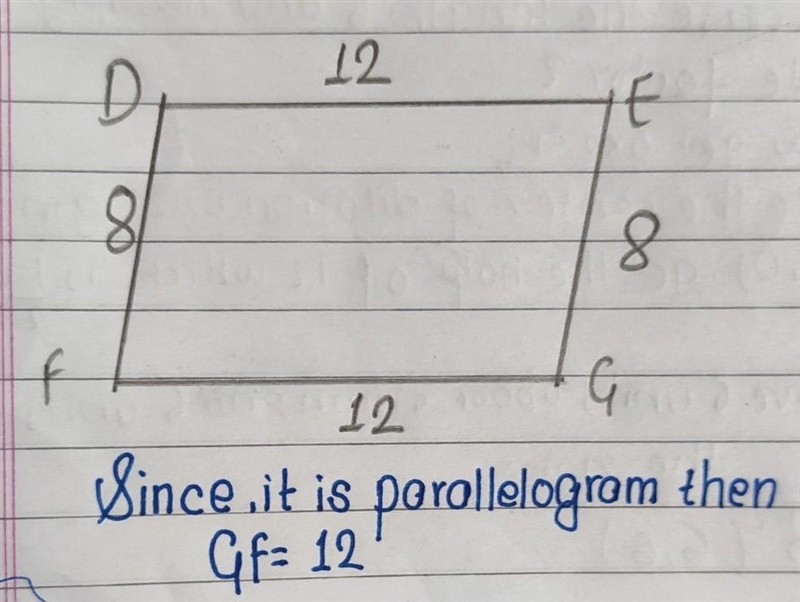 12
D E
8 8
F G
12
Since, it is parallelogram then
GF= 12